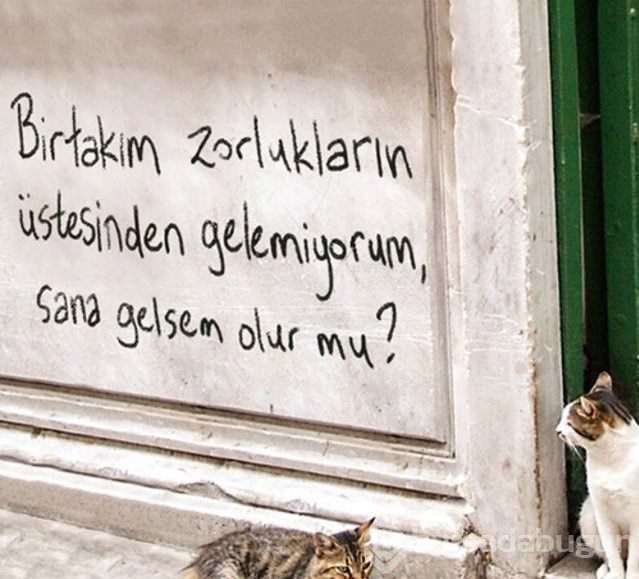 Birtakım zorlukların
üstesinden gelemiyorum,
sana gelsem olur mu?